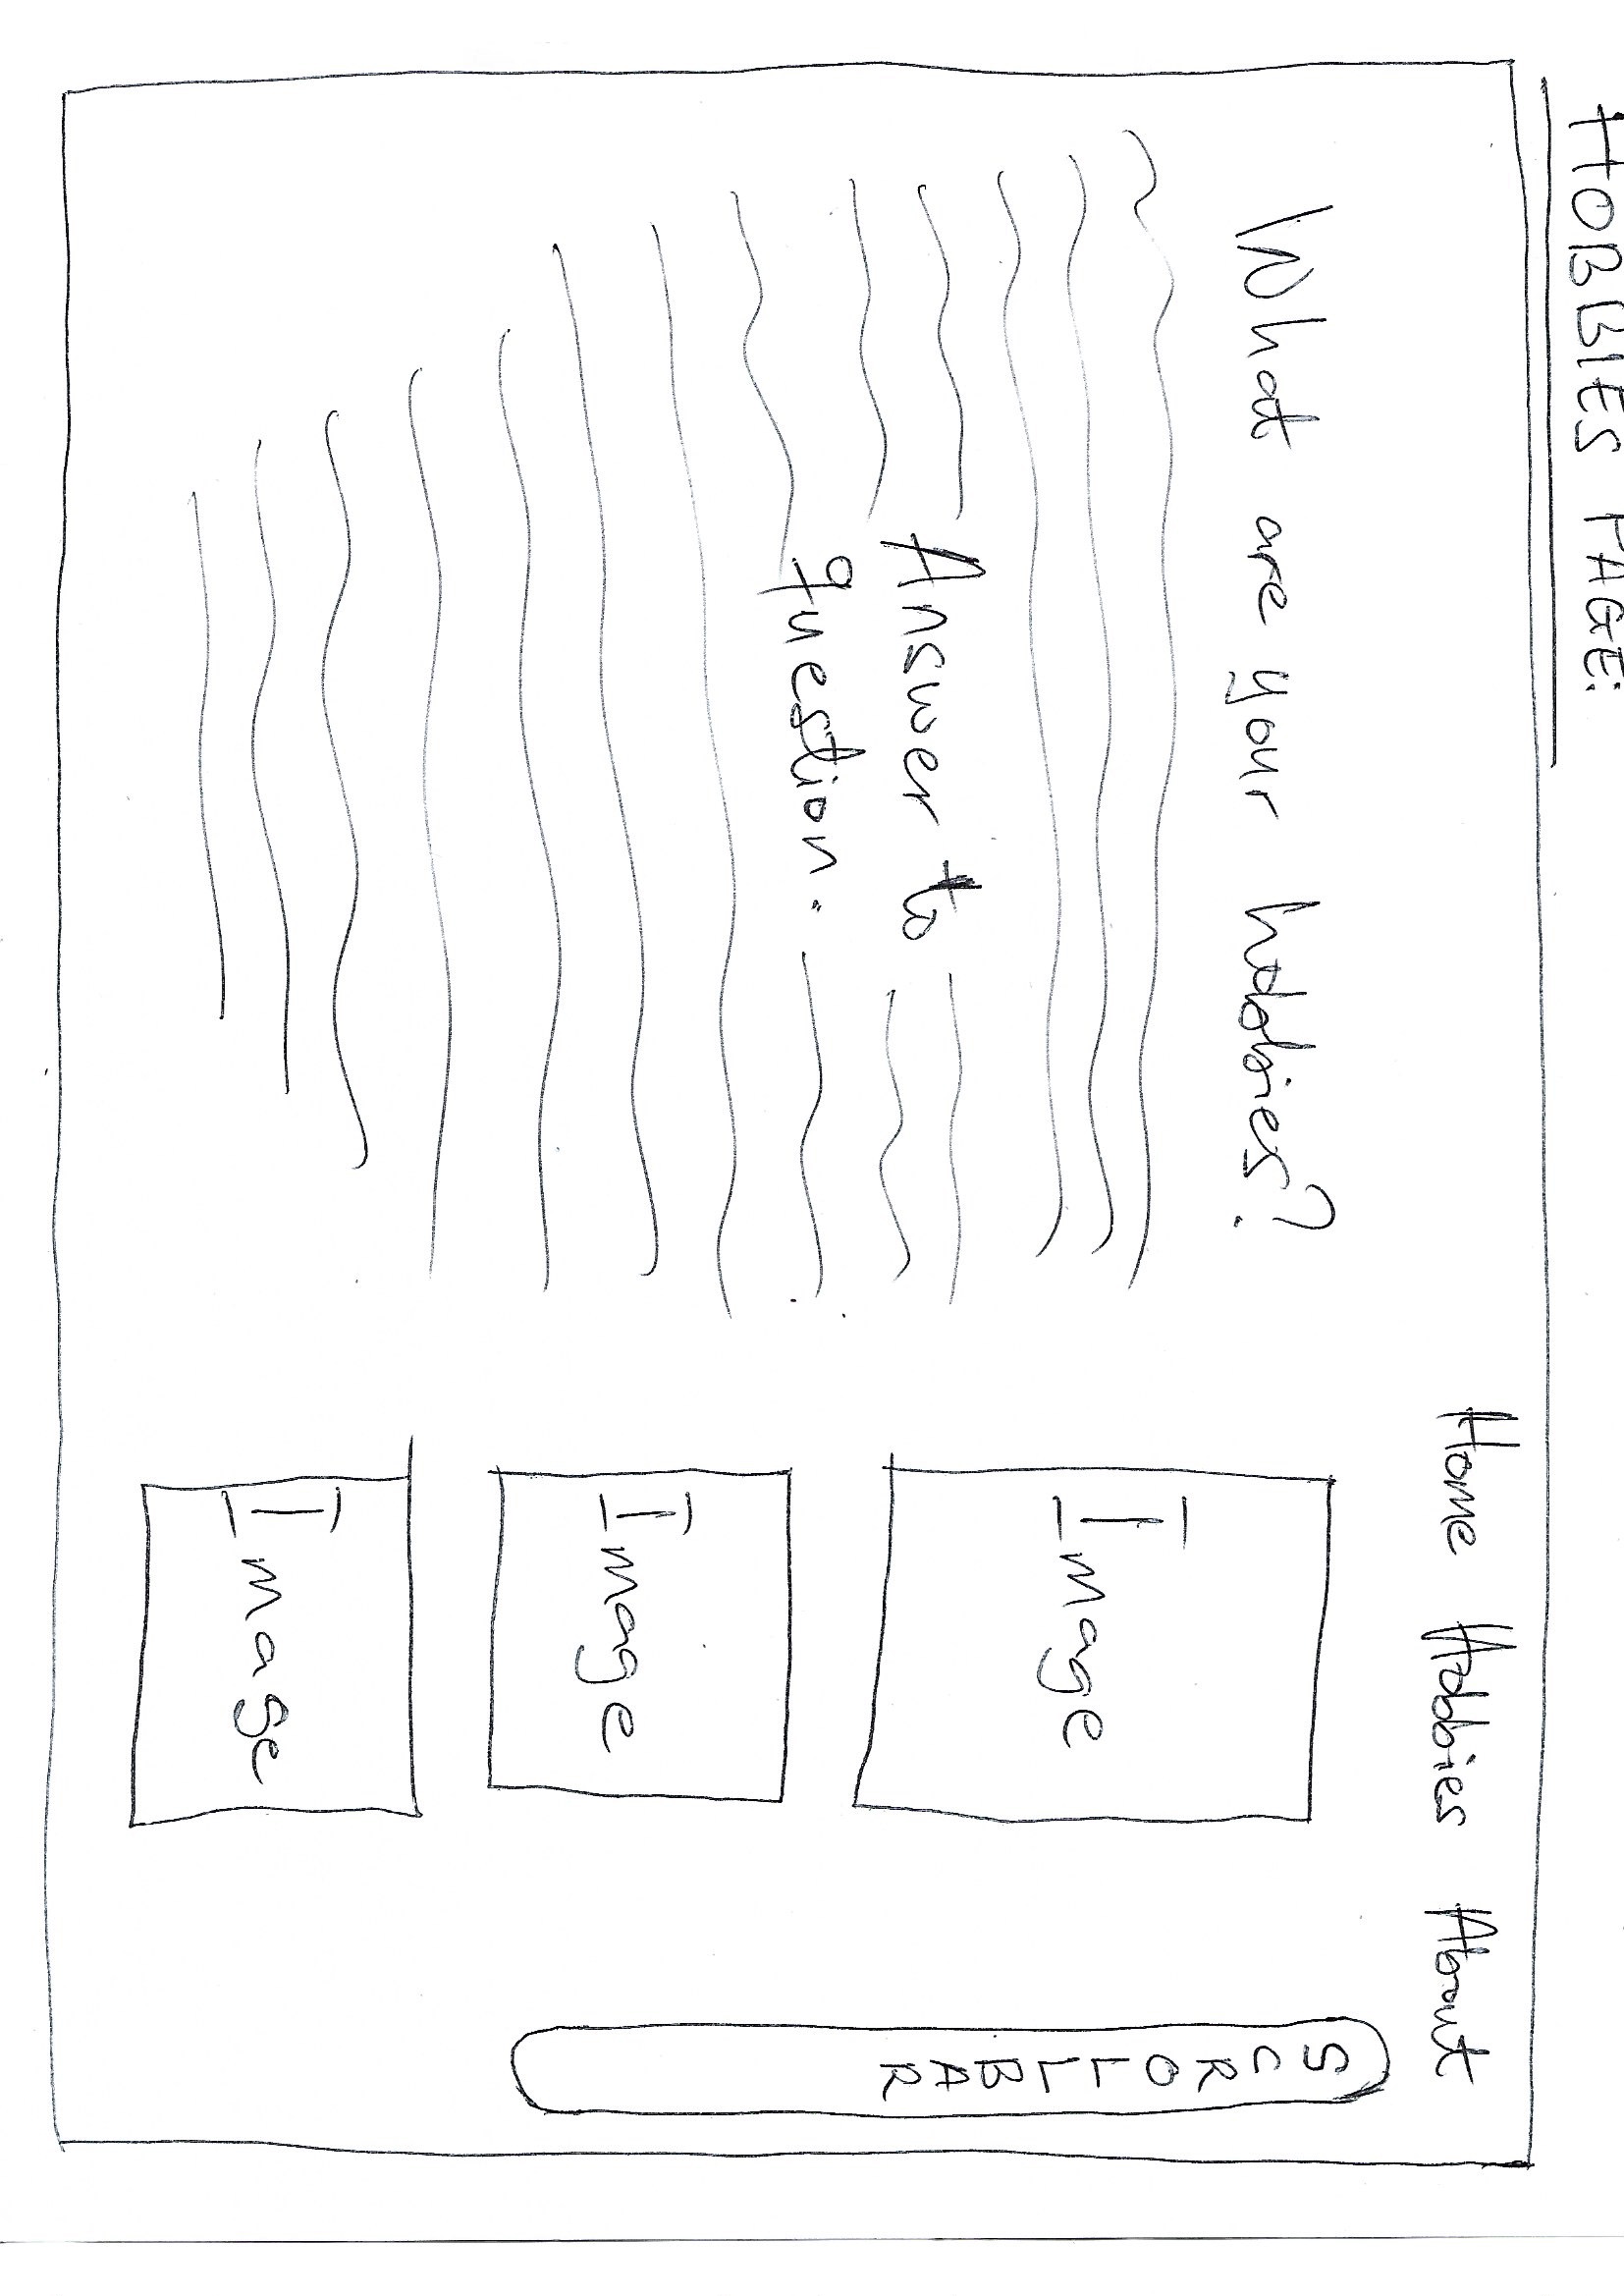 HOBBIES PAGE:
Home Hobbies About
What are your hobbies?
Answer to
question.
Image
Image
Image
SCROLLBAR